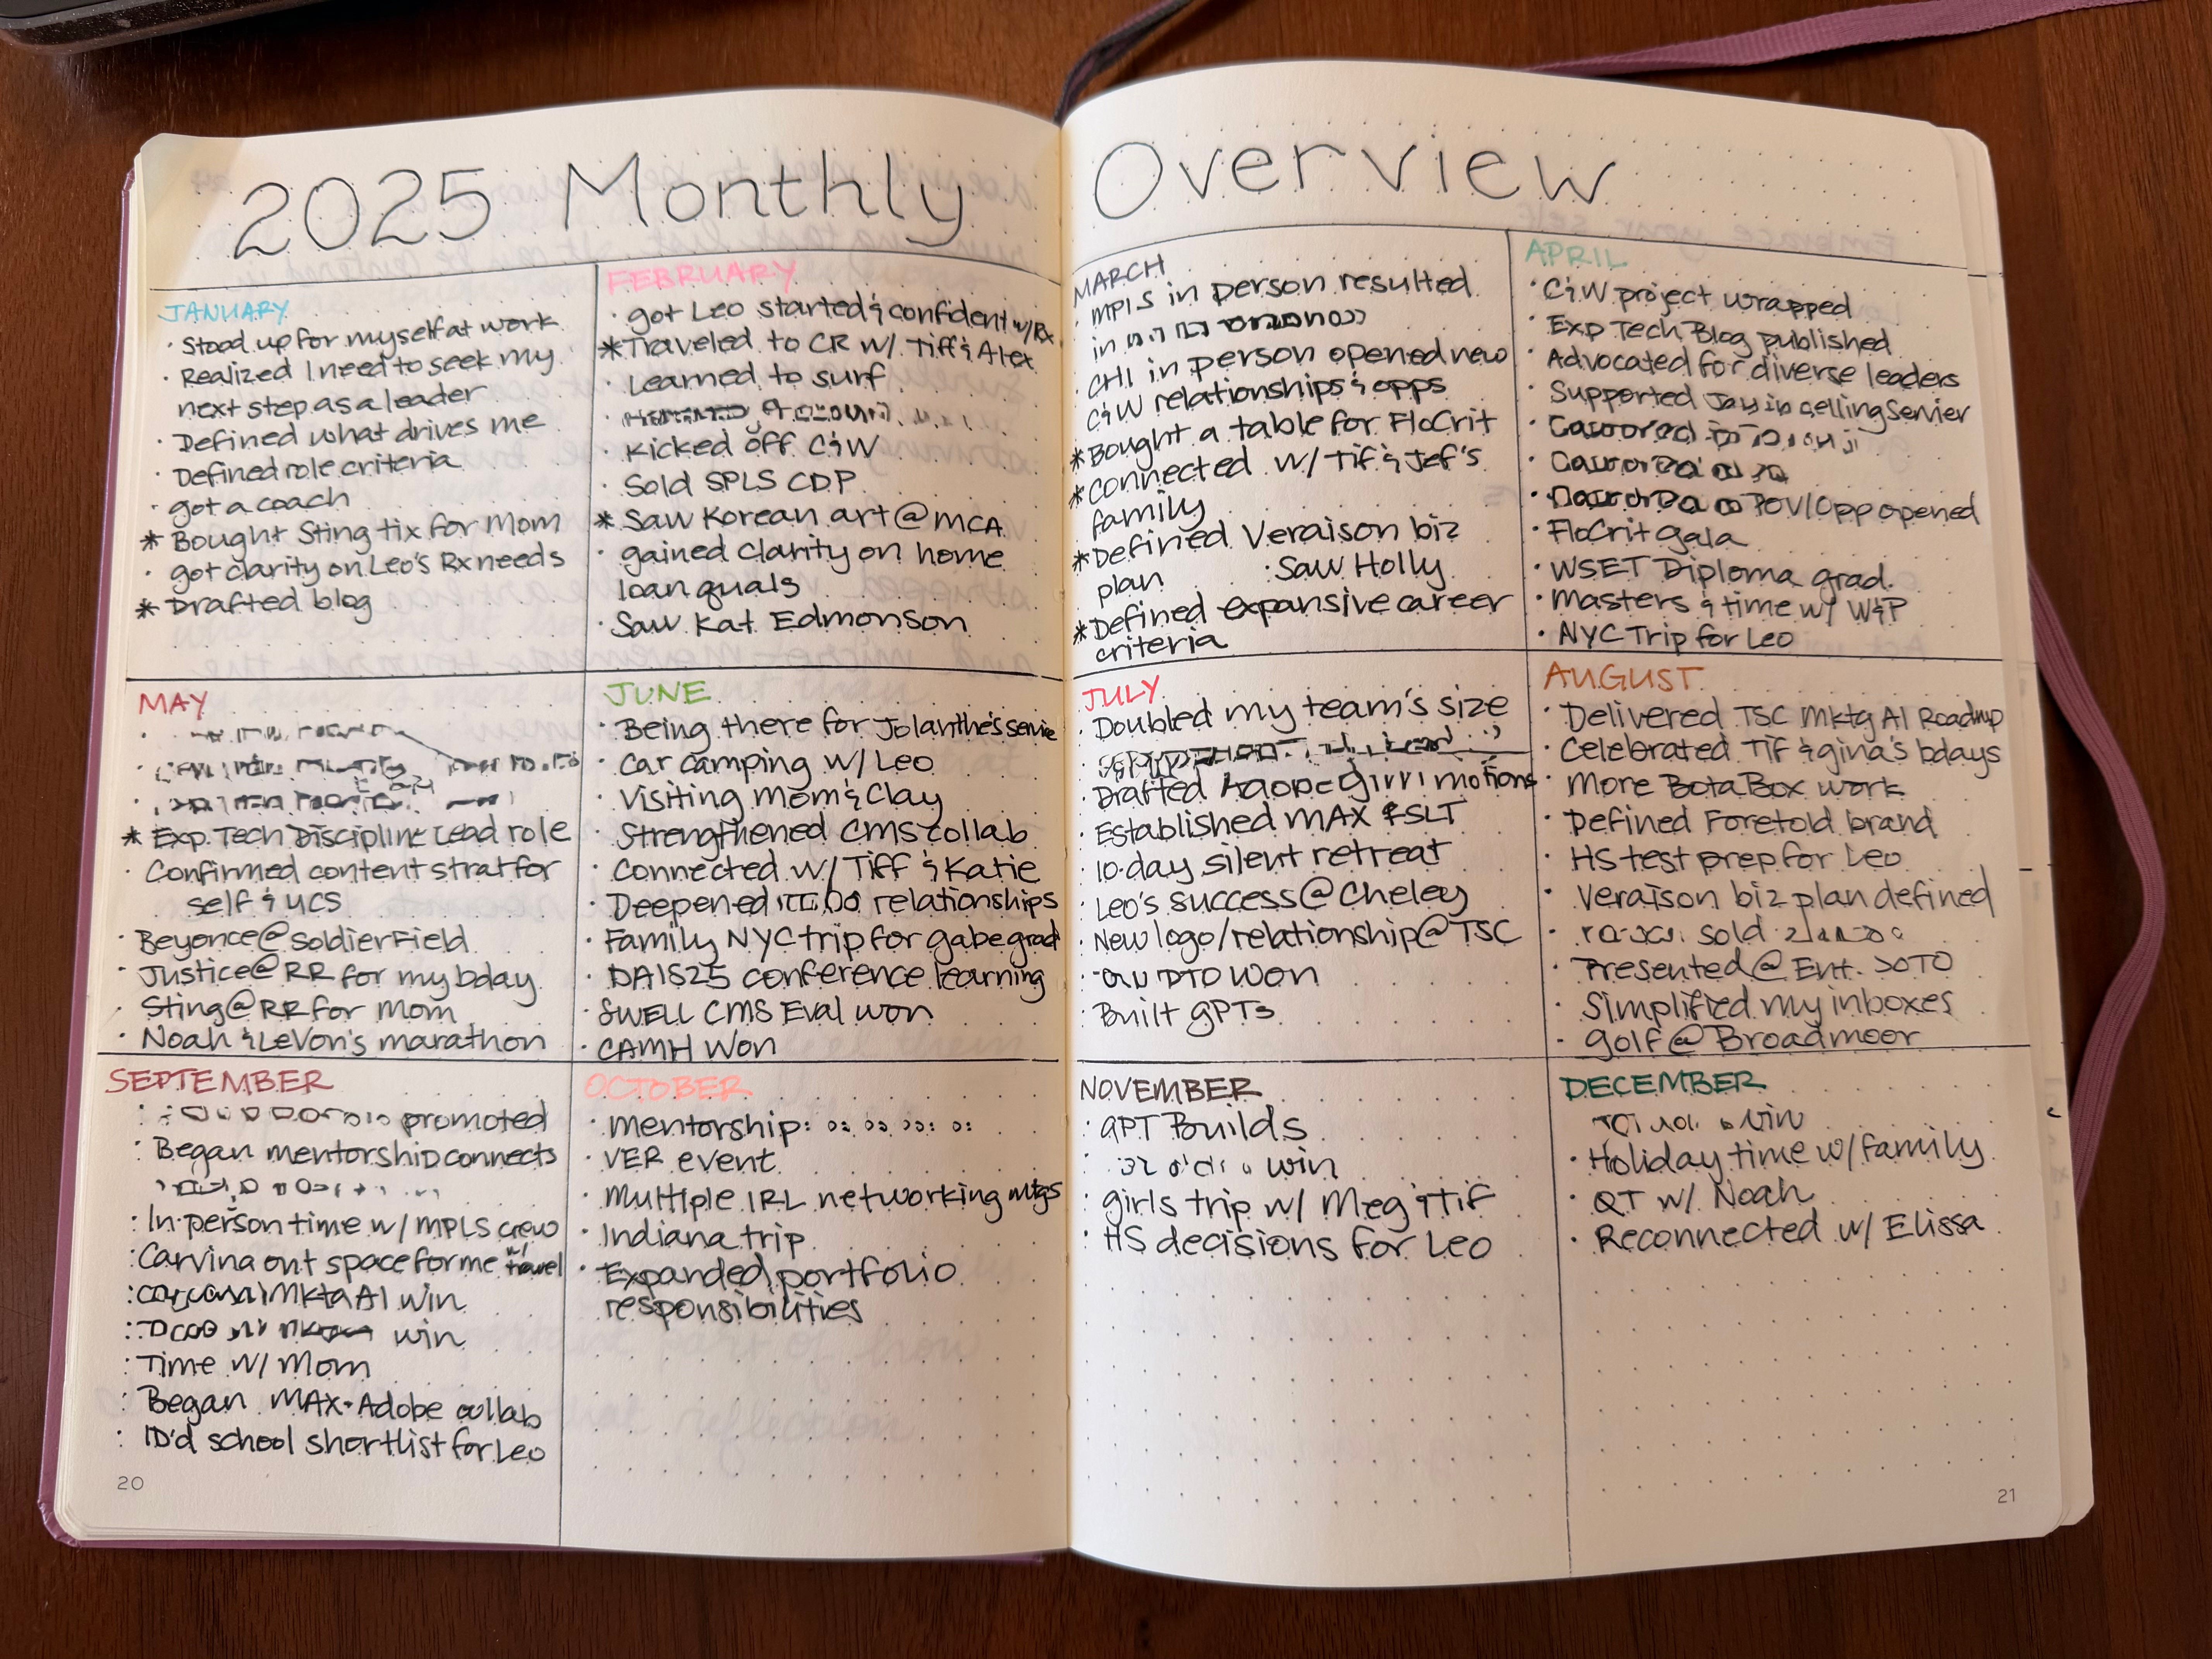 2025 Monthly Overview
JANUARY
· Stood up for myself at work
· Realized I need to seek my
next step as a leader
· Defined what drives me
· Defined role criteria
· got a coach
* Bought Sting tix for Mom
· got clarity on Leo's Rx needs
* Drafted blog
FEBRUARY
· got Leo started & confident w/ Rx
* Traveled to CR w/ Tiff & Alex
· Learned to surf
· Kicked off C&W
· Sold SPLS CDP
* Saw Korean art @ MCA
· gained clarity on home
loan quals
· Saw Kat Edmonson
MARCH
· MPLS in person resulted
in
· CHI in person opened new
C&W relationships & opps
* Bought a table for FloCrit
* Connected w/ Tif & Jef's
family
* Defined Veraison biz
plan · Saw Holly
* Defined expansive career
criteria
APRIL
· C&W project wrapped
· Exp Tech Blog published
· Advocated for diverse leaders
· Supported Jay in selling Servier
· POV/Opp opened
· FloCrit gala
· WSET Diploma grad.
· Masters & time w/ W&P
· NYC Trip for Leo
MAY
* Exp. Tech Discipline Lead role
· Confirmed content strat for
self & UCS
· Beyonce @ Soldier Field
· Justice @ RR for my bday
· Sting @ RR for Mom
· Noah & LeVon's marathon
JUNE
· Being there for Jolanthe's service
· Car camping w/ Leo
· Visiting Mom & Clay
· Strengthened CMS collab
· Connected w/ Tiff & Katie
· Deepened relationships
· Family NYC trip for Gabe grad
· DAIS25 conference learning
· SWELL CMS Eval won
· CAMH Won
JULY
· Doubled my team's size
· Drafted motions
· Established MAX & SLT
· 10-day silent retreat
· Leo's success @ Cheley
· New logo/relationship @ TSC
· DTO Won
· Built GPTs
AUGUST
· Delivered TSC Mktg AI Roadmap
· Celebrated Tif & gina's bdays
· More BotaBox work
· Defined Foretold brand
· HS test prep for Leo
· Veraison biz plan defined
· sold
· Presented @ Ent. SOTO
· Simplified my inboxes
· Golf @ Broadmoor
SEPTEMBER
· promoted
· Began mentorship connects
· In-person time w/ MPLS crew
· Carving out space for me w/ travel
· Mktg AI win
· win
· Time w/ Mom
· Began MAX-Adobe collab
· ID'd school shortlist for Leo
OCTOBER
· Mentorship:
· VER event
· Multiple IRL networking mtgs
· Indiana trip
· Expanded portfolio
responsibilities
NOVEMBER
· GPT Builds
· win
· girls trip w/ Meg & Tif
· HS decisions for Leo
DECEMBER
win
· Holiday time w/ family
· QT w/ Noah
· Reconnected w/ Elissa
20
21